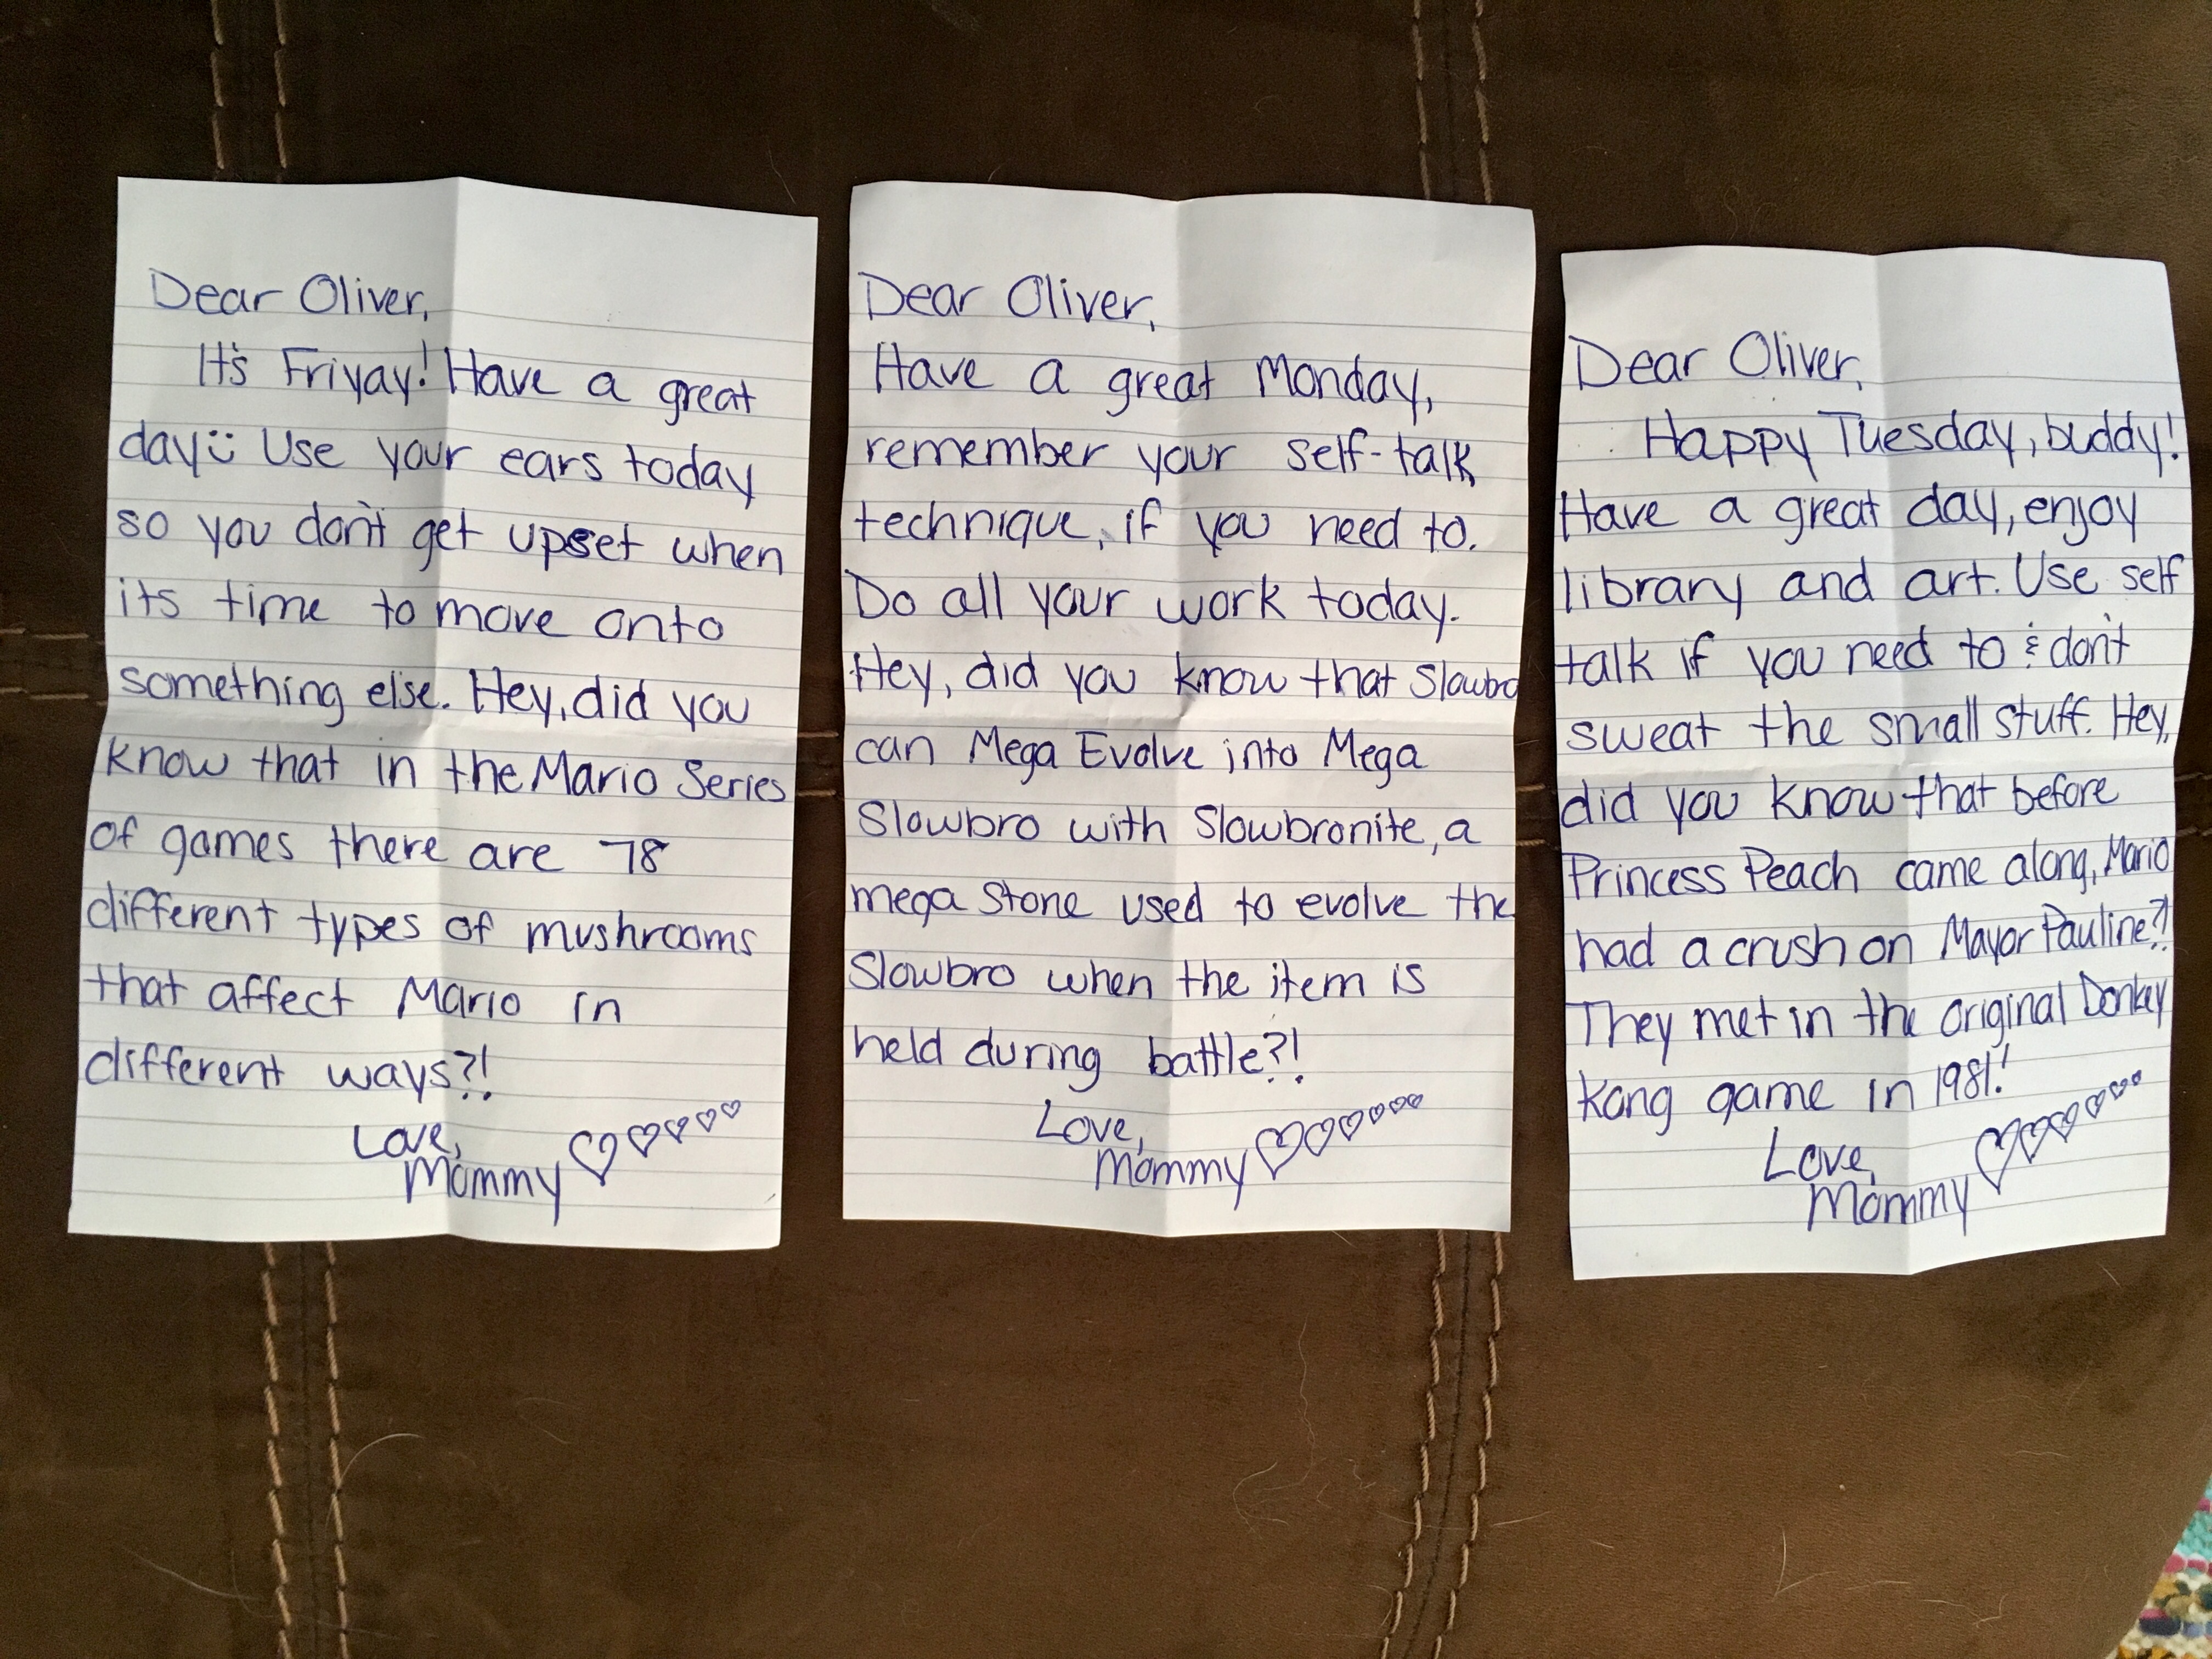 Dear Oliver,
It's Friyay! Have a great
day Use your ears today
so you don't get upset when
its time to move onto
something else. Hey, did you
know that in the Mario Series
of games there are 78
different types of mushrooms
that affect Mario in
different ways?!
Love,
Mommy ♡♡♡♡♡
Dear Oliver,
Have a great Monday,
remember your self-talk
technique, if you need to.
Do all your work today.
Hey, did you know that Slowbro
can Mega Evolve into Mega
Slowbro with Slowbronite, a
mega Stone used to evolve the
Slowbro when the item is
held during battle?!
Love,
Mommy ♡♡♡♡♡♡♡
Dear Oliver,
Happy Tuesday, buddy!
Have a great day, enjoy
library and art. Use self
talk if you need to & don't
sweat the small stuff. Hey,
did you know that before
Princess Peach came along, Mario
had a crush on Mayor Pauline?!
They met in the original Donkey
Kong game in 1981!
Love,
Mommy ♡♡♡♡♡♡♡